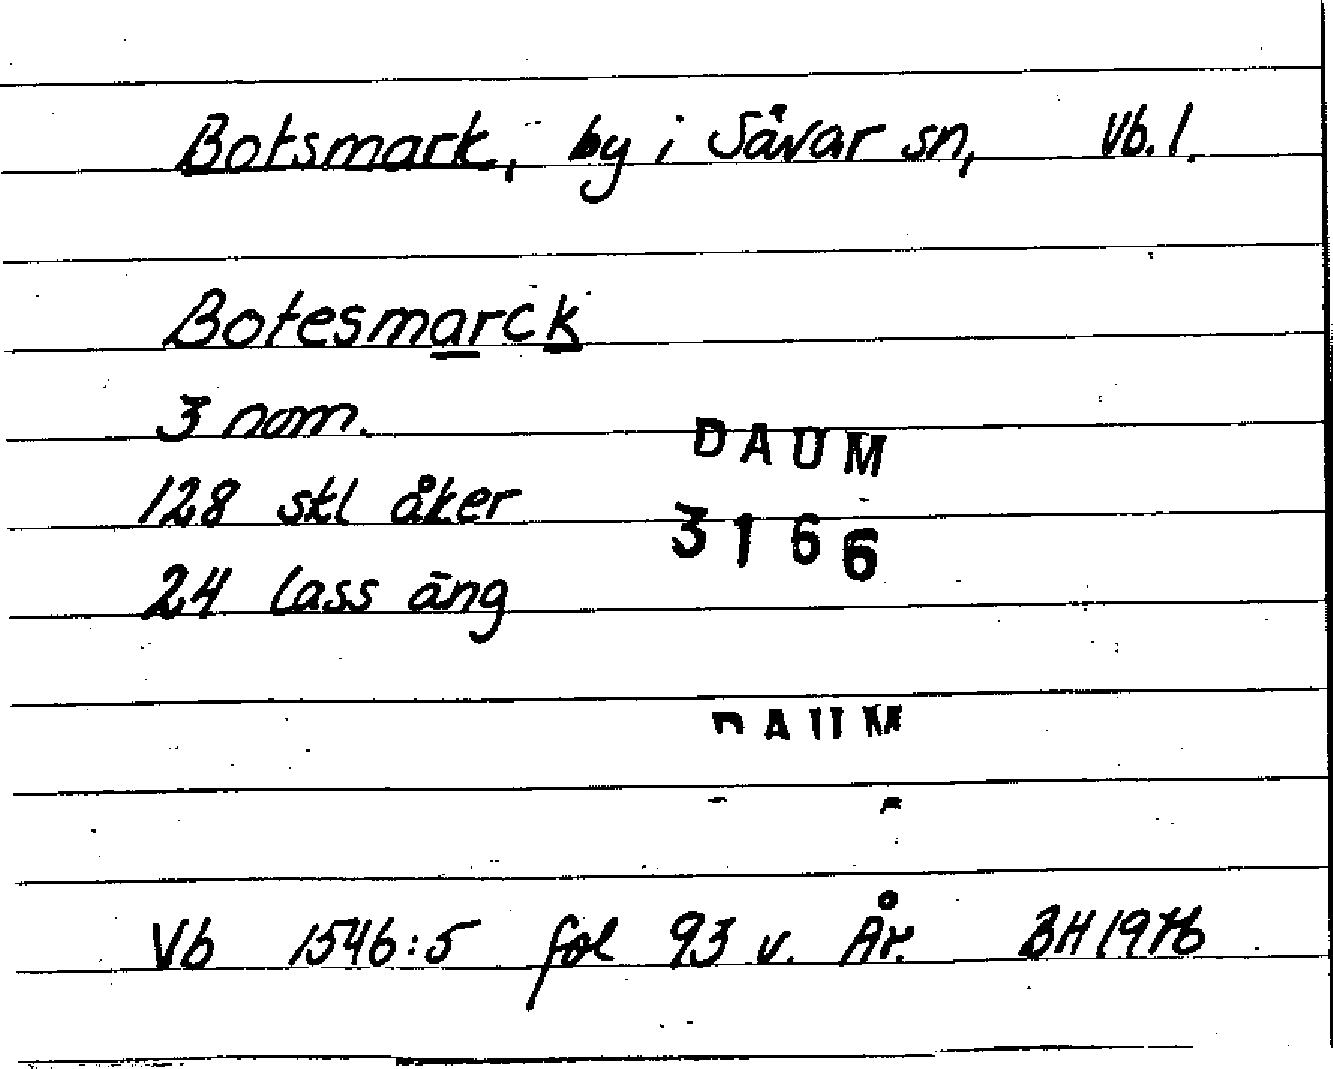 Botsmark, by i Sävar sn, Vb.l.
Botesmarck
3 nom.
DAUM
128 skl åker
3166
24 lass äng
DAUM
Vb 1546:5 fol 93 v. År. BH 1976